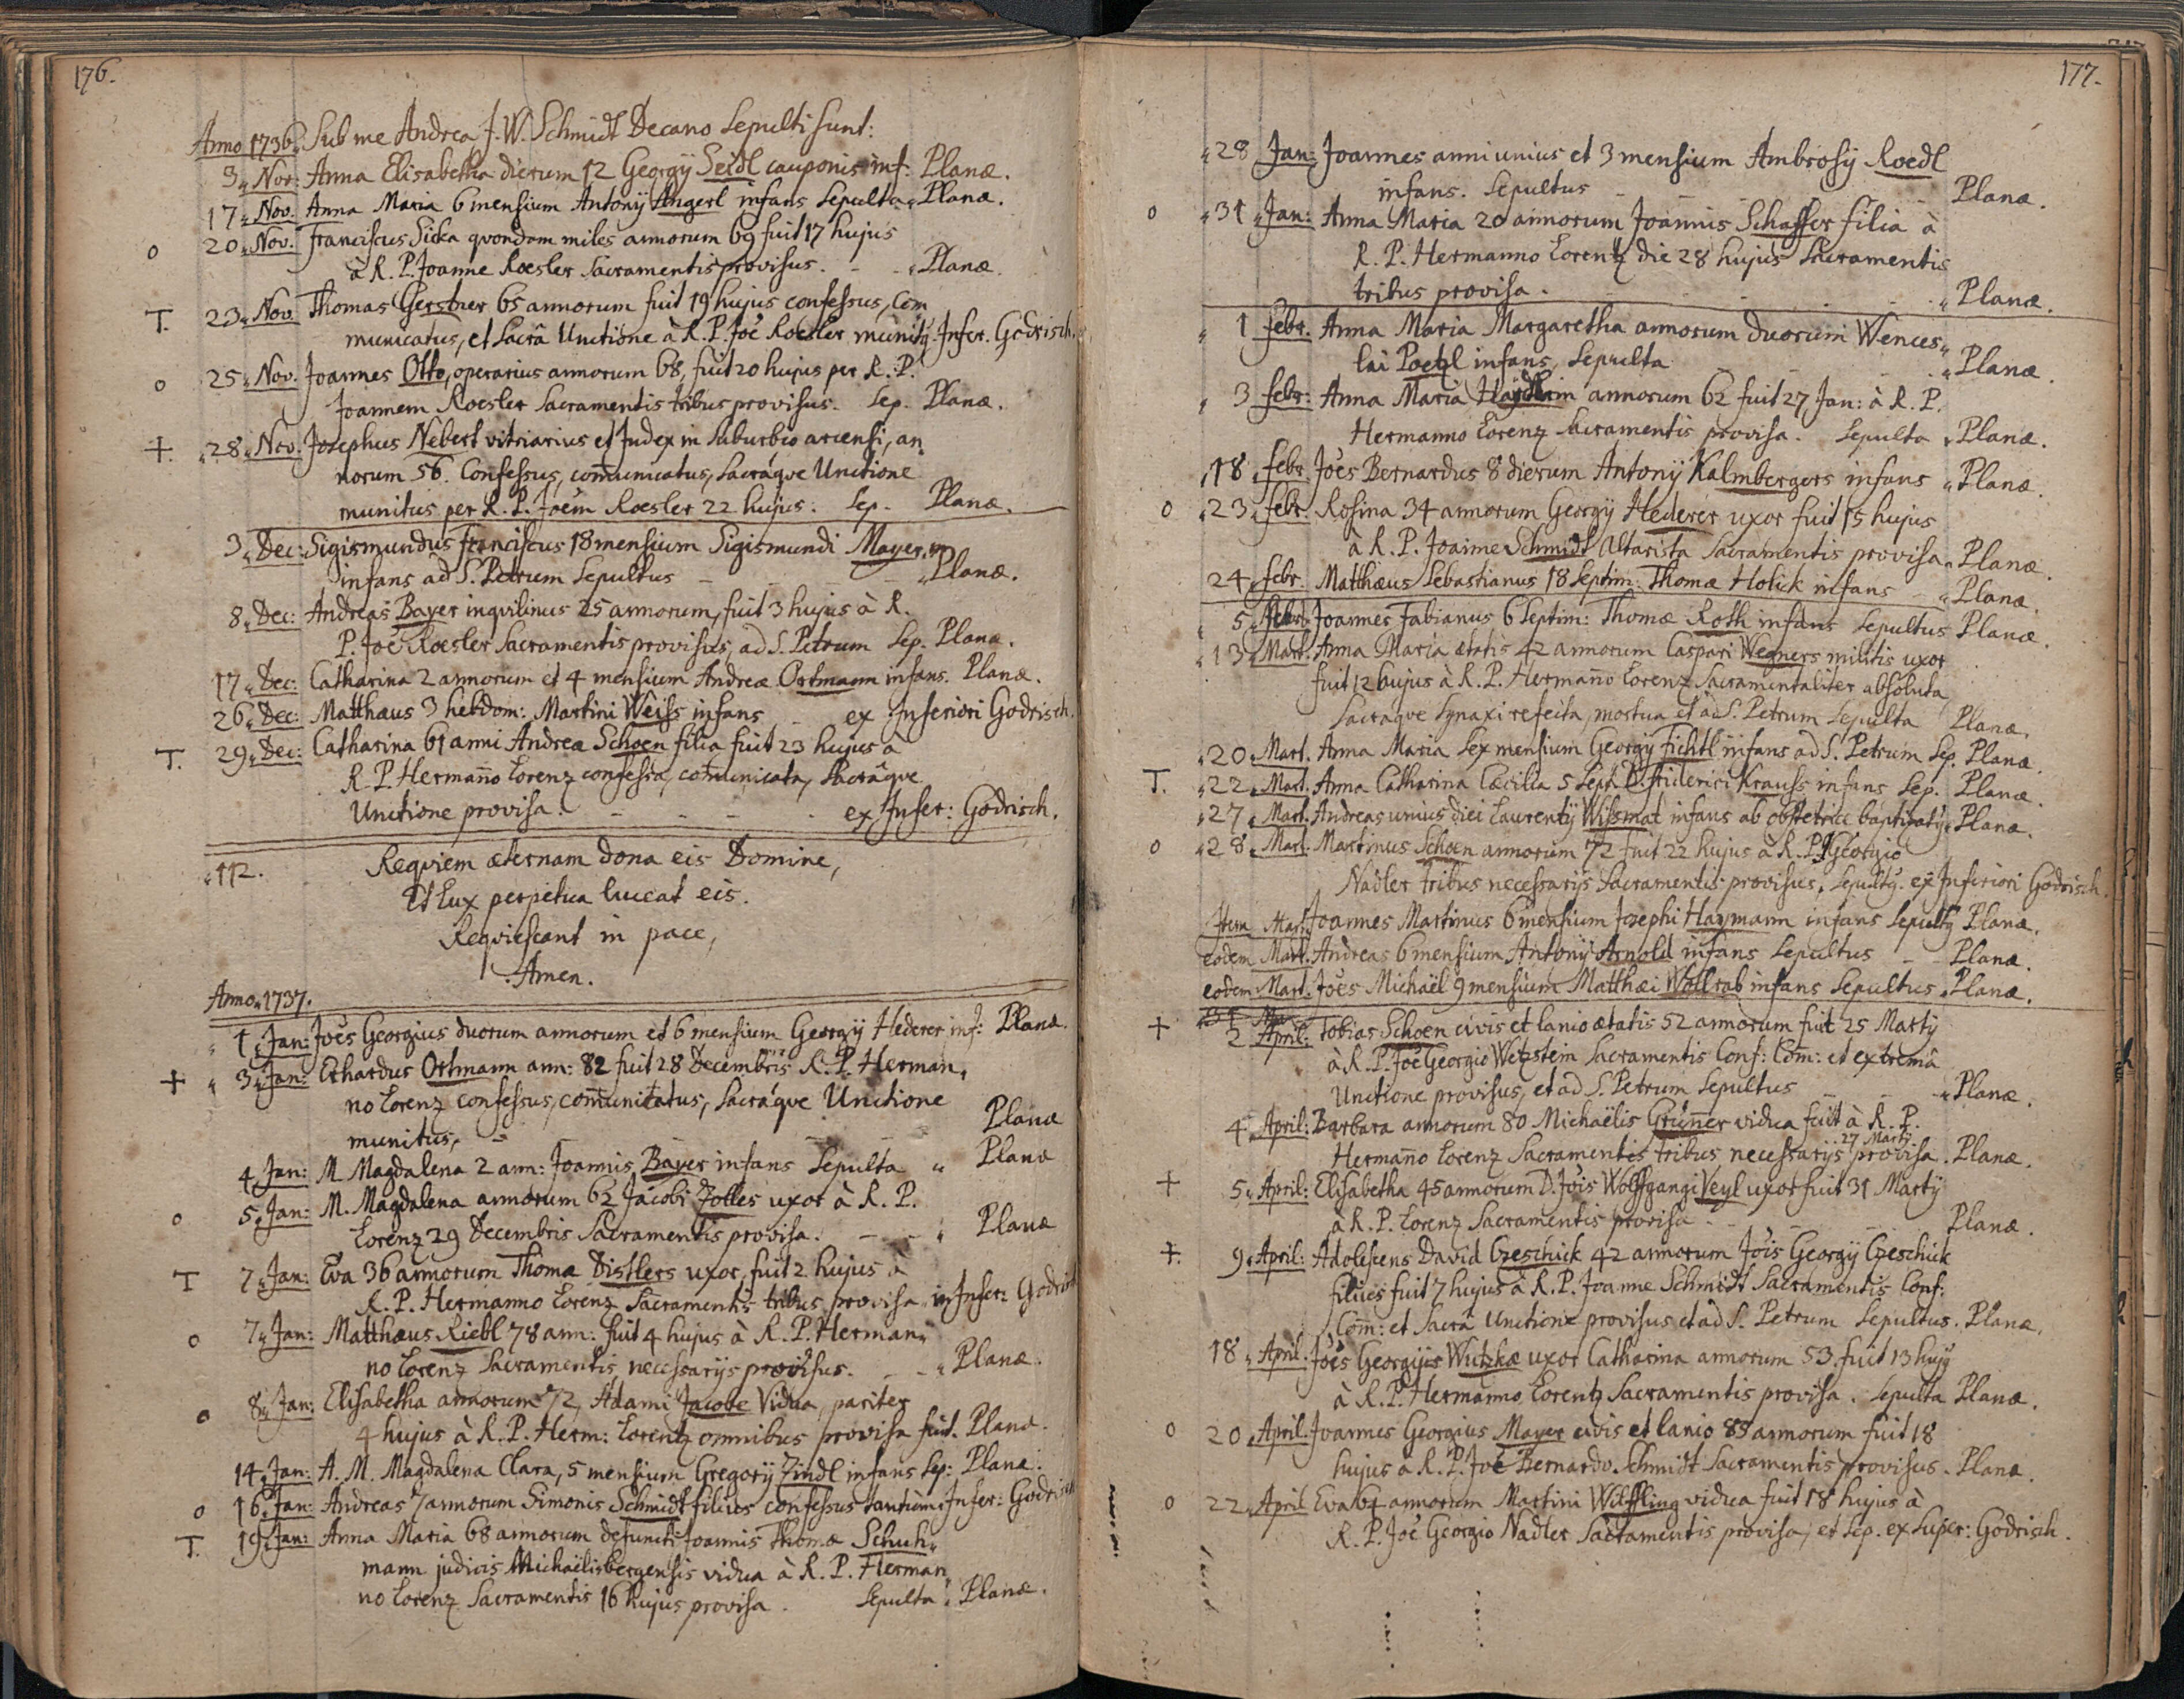 176.
Anno 1736. Sub me Andrea J. W. Schmidt Decano Sepulti sunt:
3. Nov: Anna Elisabetha dierum 12 Georgÿ Seidl cauponis inf: Planæ.
17. Nov. Anna Maria 6 mensium Antonÿ Angerl infans Sepulta Planæ.
o 20. Nov. Franciscus Sicka qvondam miles annorum 69 fuit 17 hujus
à R. P. Joanne Roesler Sacramentis provisus. Planæ.
T. 23. Nov. Thomas Gerstner 65 annorum fuit 19 hujus confessus, Com
municatus, et Sacrâ Unctione à R. P. Joe Roesler munitq. Infer. Godrisch.
o 25. Nov. Joannes Otto, operarius annorum 68, fuit 20 hujus per R. P.
Joannem Roesler Sacramentis tribus provisus. Sep. Planæ.
+. 28. Nov. Josephus Nebert vitriarius et Judex in Suburbio arcensi, an,,
norum 56. Confessus, com̄unicatus, Sacráqve Unctione
munitus per R. P. Joēm Roesler 22 hujus. Sep. Planæ.
3. Dec: Sigismundus Franciscus 18 mensium Sigismundi Mayer
infans ad S. Petrum Sepultus Planæ.
8. Dec: Andreas Bayer inqvilinus 25 annorum, fuit 3 hujus à R.
P. Joe Roesler Sacramentis provisus, ad S. Petrum Sep. Planæ.
17. Dec: Catharina 2 annorum et 4 mensium Andreæ Ortmann infans. Planæ.
26. Dec: Matthæus 3 hebdom: Martini Weiss infans ex Inferiori Godrisch.
T. 29. Dec: Catharina 61 anni Andreæ Schoen filia fuit 23 hujus à
R. P. Herman̄o Lorenz confessa, com̄unicata, Sacráqve
Unctione provisa. ex Infer: Godrisch.
112. Reqviem æternam dona eis Domine,
Et Lux perpetua luceat eis.
Reqviescant in pace,
Amen.
Anno 1737.
1. Jan: Joēs Georgius duorum annorum et 6 mensium Georgÿ Hederer inf: Planæ.
+ 3. Jan: Erhardus Ortmann ann: 82 fuit 28 Decembris R. P. Herman,,
no Lorenz confessus, com̄unicatus, Sacráqve Unctione
munitus, Planæ
4. Jan: M. Magdalena 2 ann: Joannis Bayer infans Sepulta Planæ
o 5. Jan: M. Magdalena annorum 62 Jacobi Zolles uxor à R. P.
Lorenz 29 Decembris Sacramentis provisa. Planæ
T 7. Jan: Eva 36 annorum Thomæ Distlers uxor, fuit 2 hujus à
R. P. Hermanno Lorenz Sacramentis tribus provisa in Infer: Godrisch
o 7. Jan: Matthæus Riebl 78 ann: fuit 4 hujus à R. P. Herman,,
no Lorenz Sacramentis necessarÿs provisus. Planæ.
o 8. Jan: Elisabetha annorum 72, Adami Jacobe Vidua, pariter
4 hujus à R. P. Herm: Lorentz omnibus provisa fuit. Planæ.
14. Jan: A. M. Magdalena Clara, 5 mensium Gregorÿ Zindl infans Sep: Planæ.
o 16. Jan: Andreas 7 annorum Simonis Schmidt filius confessus tantùm. Infer: Godrisch
T. 19. Jan: Anna Maria 68 annorum defuncti Joannis Thomæ Schuh,,
mann judicis Michaëlisbergensis vidua à R. P. Herman,,
no Lorenz Sacramentis 16 hujus provisa. Sepulta. Planæ.
177.
28 Jan: Joannes anni unius et 3 mensium Ambrosÿ Roedl
infans. Sepultus Planæ.
o 31 Jan: Anna Maria 20 annorum Joannis Schaffer filia à
R. P. Hermanno Lorentz die 28 hujus Sacramentis
tribus provisa. Planæ.
1 Febr. Anna Maria Margaretha annorum duorum Wences,,
lai Poetzl infans, Sepulta Planæ.
3 Febr: Anna Maria annorum 62 fuit 27 Jan: à R. P.
Hermanno Lorenz Sacramentis provisa. Sepulta Planæ.
18 Febr. Joēs Bernardus 8 dierum Antonÿ Kalmbergers infans Planæ.
o 23. Febr. Rosina 34 annorum Georgÿ Hederer uxor fuit 15 hujus
à R. P. Joanne Schmidt Altarista Sacramentis provisa. Planæ.
24. Febr. Matthæus Sebastianus 18 Septim: Thomæ Holick infans Planæ.
5. Joannes Fabianus 6 Septim: Thomæ Roth infans Sepultus Planæ.
13. Mart: Anna Maria ætatis 42 annorum Caspari Wegners militis uxor
fuit 12 hujus à R. P. Herman̄o Lorenz Sacramentaliter absoluta,
Sacraqve Synaxi refecta, mortua et ad S. Petrum Sepulta Planæ.
20. Mart. Anna Maria Sex mensium Georgÿ Fichtl infans ad S. Petrum Sep. Planæ.
T. 22. Mart. Anna Catharina Cæcilia 5 Sept. Friderici Krauss infans Sep. Planæ.
27. Mart. Andreas unius diei Laurentÿ Wissmat infans ab obstetrice baptizatq. Planæ.
o 28. Mart. Martinus Schoen annorum 72 fuit 22 hujus à R. P. Georgio
Nadler tribus necessarÿs Sacramentis provisus. Sepultq. ex Inferiori Godrisch.
Item Mart. Joannes Martinus 6 mensium Josephi Haymann infans Sepultq Planæ.
eodem Mart. Andreas 6 mensium Antonÿ Arnold infans Sepultus Planæ.
eodem Mart. Joēs Michaël 9 mensium Matthæi Wollrab infans Sepultus. Planæ.
+ 2 April: Tobias Schoen civis et lanio ætatis 52 annorum fuit 25 Martÿ
à R. P. Joe Georgio Wetzstein Sacramentis Conf: Com̄: et extremâ
Unctione provisus, et ad S. Petrum Sepultus Planæ.
4. April: Barbara annorum 80 Michaëlis Grün̄er vidua fuit à R. P.
27 Martÿ
Herman̄o Lorenz Sacramentis tribus necessarÿs provisa. Planæ.
+ 5. April: Elisabetha 45 annorum D. Jōis Wolffgangi Veyl uxor fuit 31 Martÿ
à R. P. Lorenz Sacramentis provisa Planæ.
+. 9. April: Adolescens David Czeschick 42 annorum Jōis Georgÿ Czeschick
filius fuit 7 hujus à R. P. Joanne Schmidt Sacramentis Conf:
Com̄: et Sacrâ Unctione provisus et ad S. Petrum Sepultus. Planæ.
18. April. Joēs Georgÿs Wutzkæ uxor Catharina annorum 53. fuit 13 hujq
à R. P. Hermanno Lorentz Sacramentis provisa. Sepulta Planæ.
o 20. April. Joannes Georgius Mayer civis et lanio annorum fuit 18
hujus à R. P. Joe Bernardo Schmidt Sacramentis provisus. Planæ.
o 22. April Eva annorum Martini Wilffling vidua fuit 18 hujus à
R. P. Joe Georgio Nadler Sacramentis provisa, et Sep. ex Super: Godrisch.